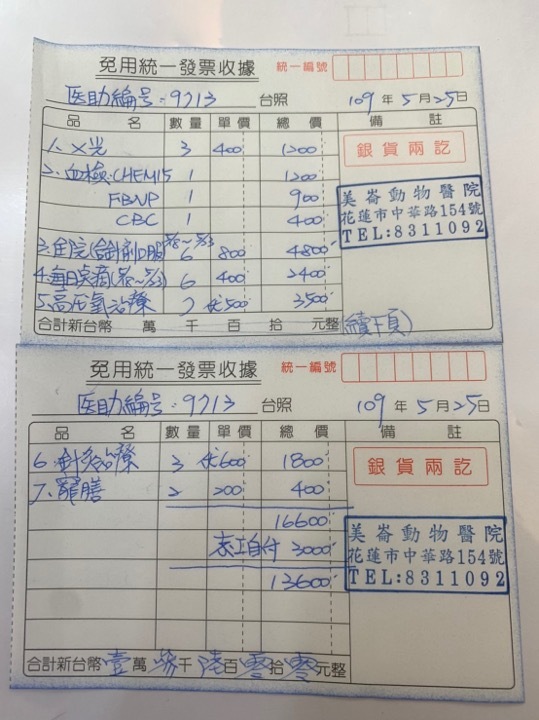 免用統一發票收據 統一編號
医助編号:9713 台照 109年5月25日
品名 數量 單價 總價 備註
1. X光 3 400 1200
銀貨兩訖
2. 血檢:CHEM15 1 1200
FBNP 1 900
CBC 1 400
美崙動物醫院
花蓮市中華路154號
TEL:8311092
3. 住院(含針劑口服 6 800 4800
4. 每日点滴 6 400 2400
5. 高压氧治療 7 500 3500
合計新台幣 萬 千 百 拾 元整 (續下頁)
免用統一發票收據 統一編號
医助編号:9713 台照 109年5月25日
品名 數量 單價 總價 備註
6. 針灸治療 3 600 1800
銀貨兩訖
7. 藥膳 2 200 400
16600
志工自付 3000
13600
美崙動物醫院
花蓮市中華路154號
TEL:8311092
合計新台幣 壹萬參千陸百零拾零元整